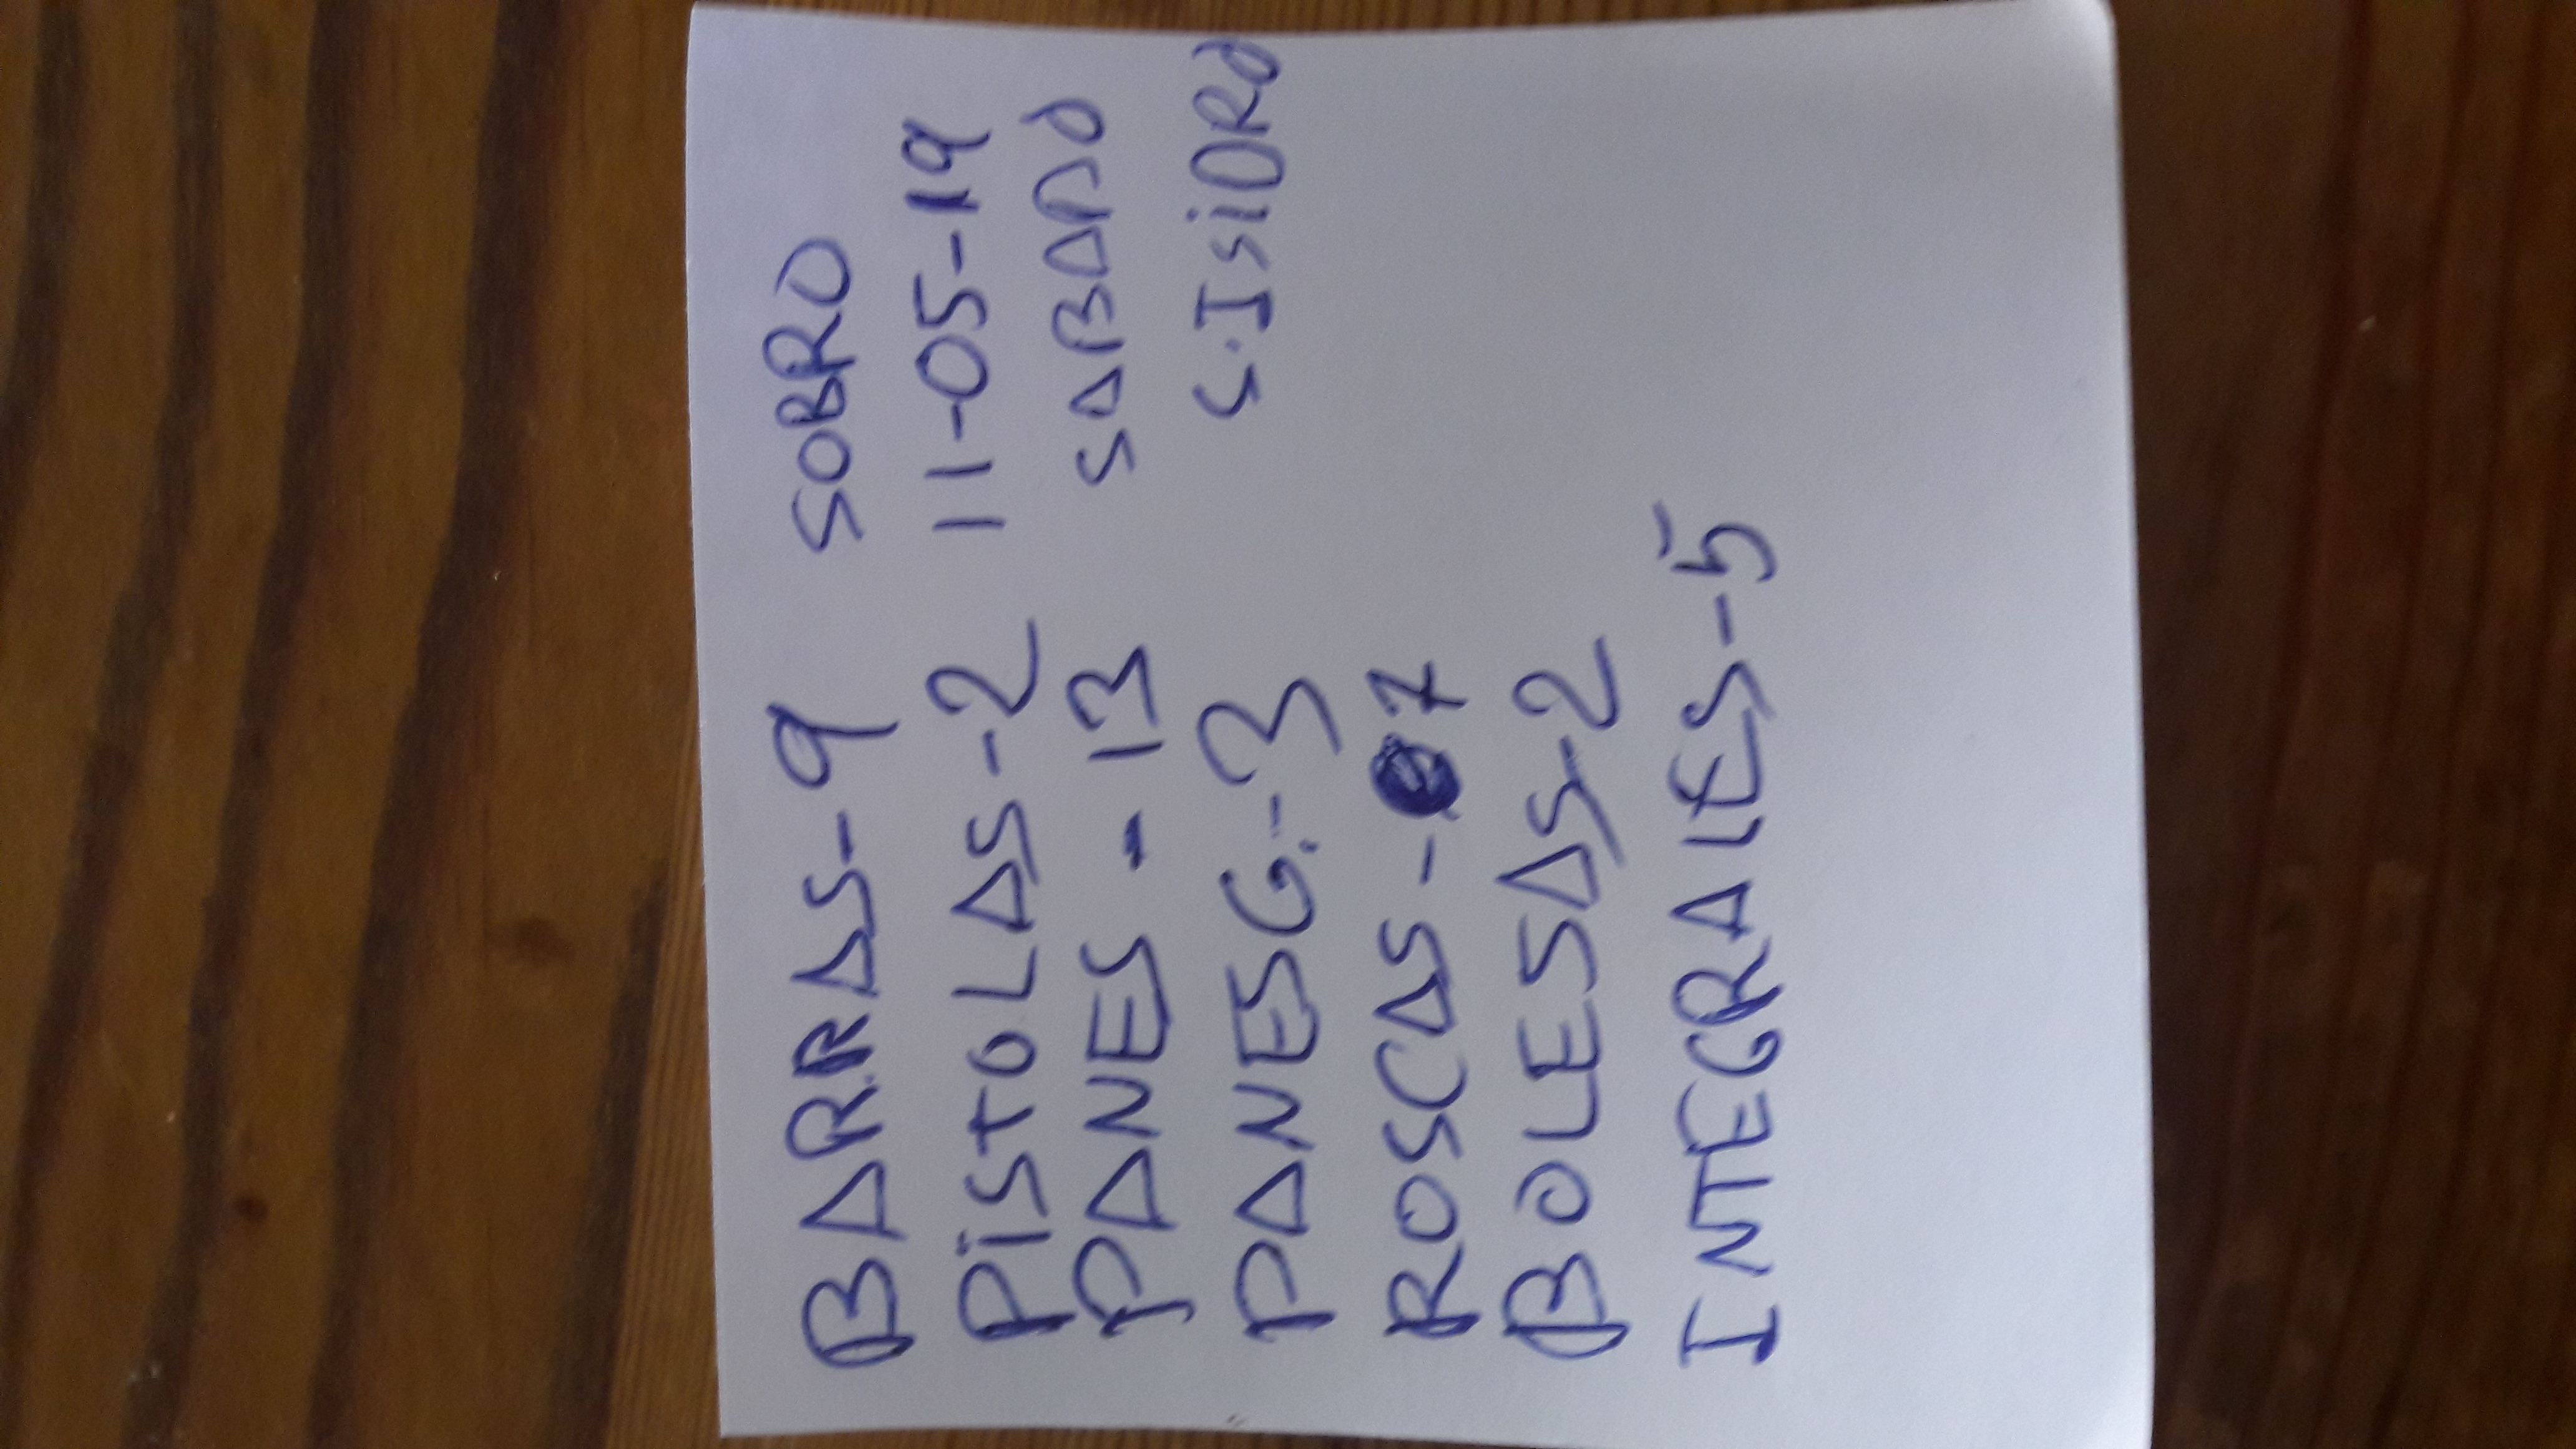 BARRAS-9 SOBRO
PiSTOLAS-2 11-05-19
PANES - 13 SABADO
PANESG.-3 S.ISiDRO
ROSCAS-7
BOLESAS-2
INTEGRALES-5